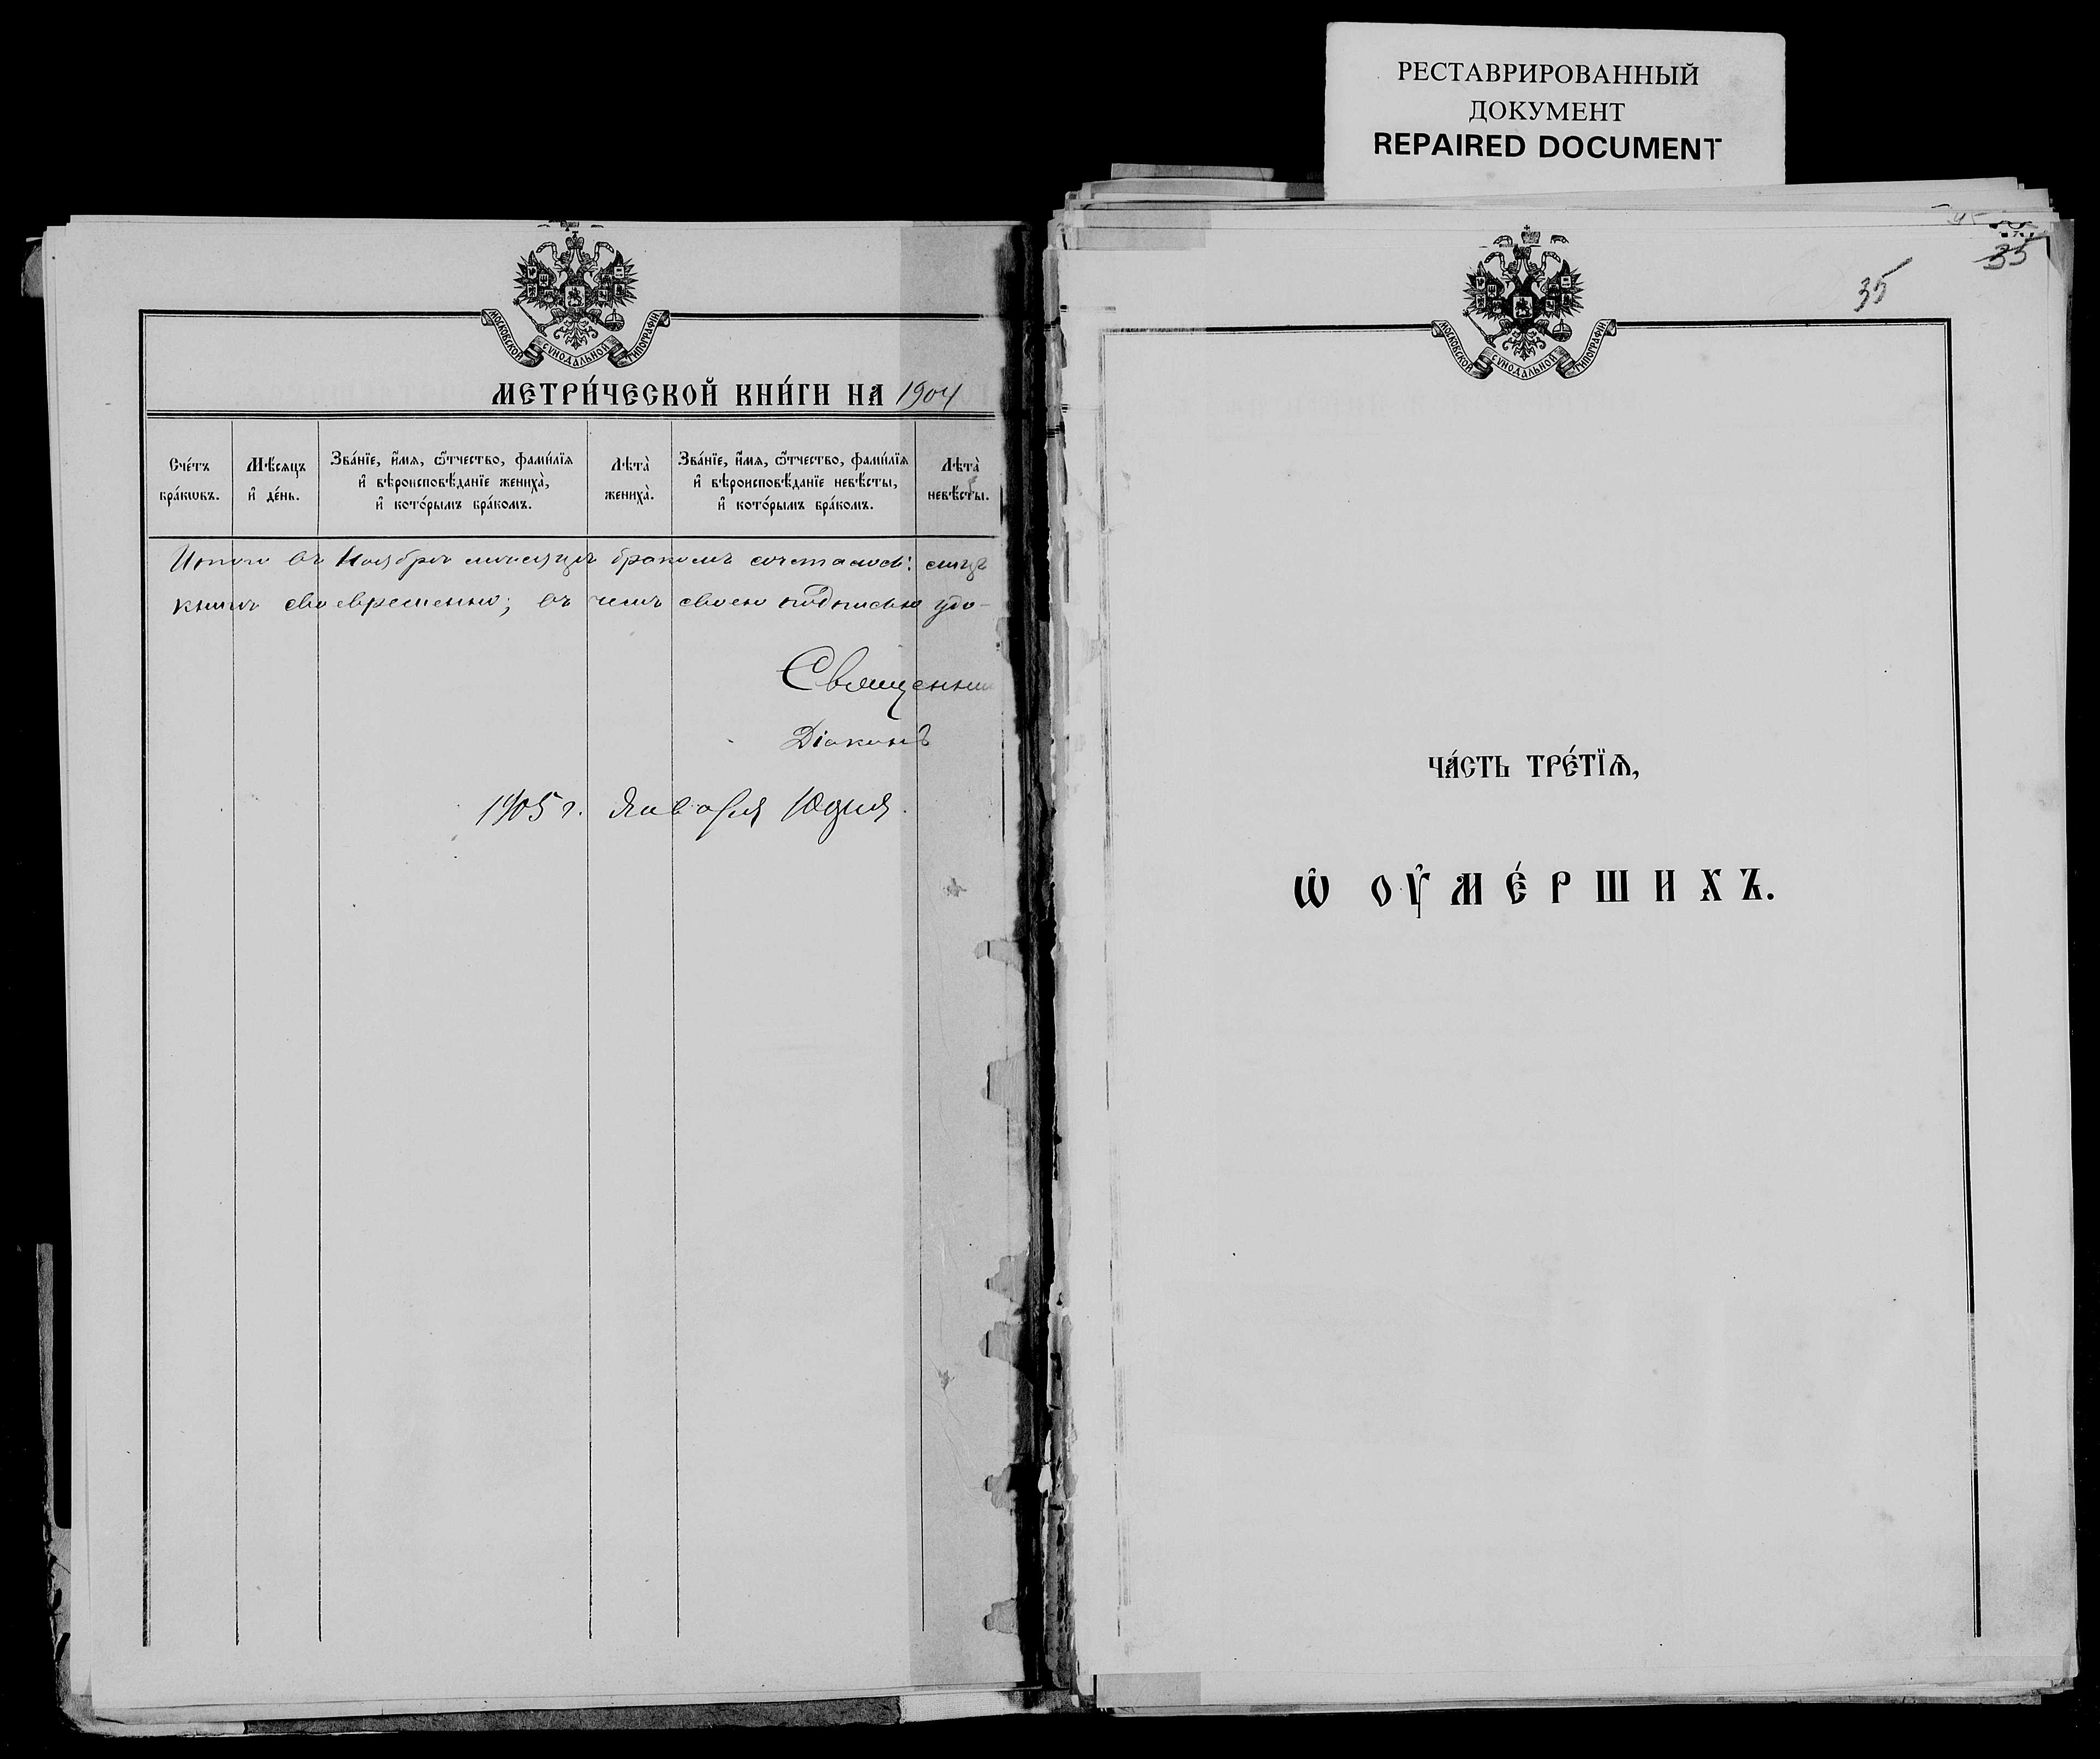 РЕСТАВРИРОВАННЫЙ
ДОКУМЕНТ
REPAIRED DOCUMENT
МОСКОВСКОЙ СѴНОДАЛЬНОЙ ТИПОГРАФІИ
МЕТРИ́ЧЕСКОЙ КНИ́ГИ НА 1904
Сче́тъ
бра́кѡвъ.
Мѣ́сяцъ
и҆ де́нь.
Зва́нїе, и҆́мѧ, ѻ҆́тчество, фами́лїѧ
и҆ вѣроисповѣ́данїе женихà,
и҆ кото́рымъ бра́комъ.
Лѣтà
женихà.
Зва́нїе, и҆́мѧ, ѻ҆́тчество, фами́лїѧ
и҆ вѣроисповѣ́данїе невѣ́сты,
и҆ кото́рымъ бра́комъ.
Лѣтà
невѣ́сты.
Итого въ Ноябрѣ мѣсяцѣ бракомъ сочеталось:
своевременно; въ чемъ своею подписью удо-
Священни
Діаконъ
1905 г. Января 10 дня.
МОСКОВСКОЙ СѴНОДАЛЬНОЙ ТИПОГРАФІИ
35
35
ЧА́СТЬ ТРЕ́ТЇѦ,
Ѡ҆ ОУ҆МЕ́РШИХЪ.